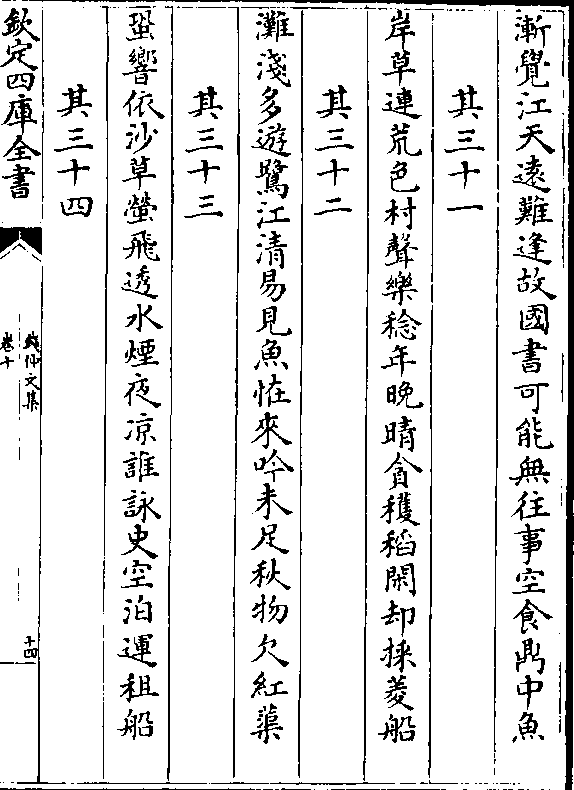 漸覺江天遠難逢故國書可能無往事空食鼎中魚
其三十一
岸草連荒色村聲樂稔年晚晴貪穫稻閑却採菱船
其三十二
灘淺多遊鷺江清易見魚怪來吟未足秋物欠紅蕖
其三十三
蛩響依沙草螢飛透水煙夜凉誰詠史空泊運租船
其三十四
欽定四庫全書
錢仲文集
卷十
十四